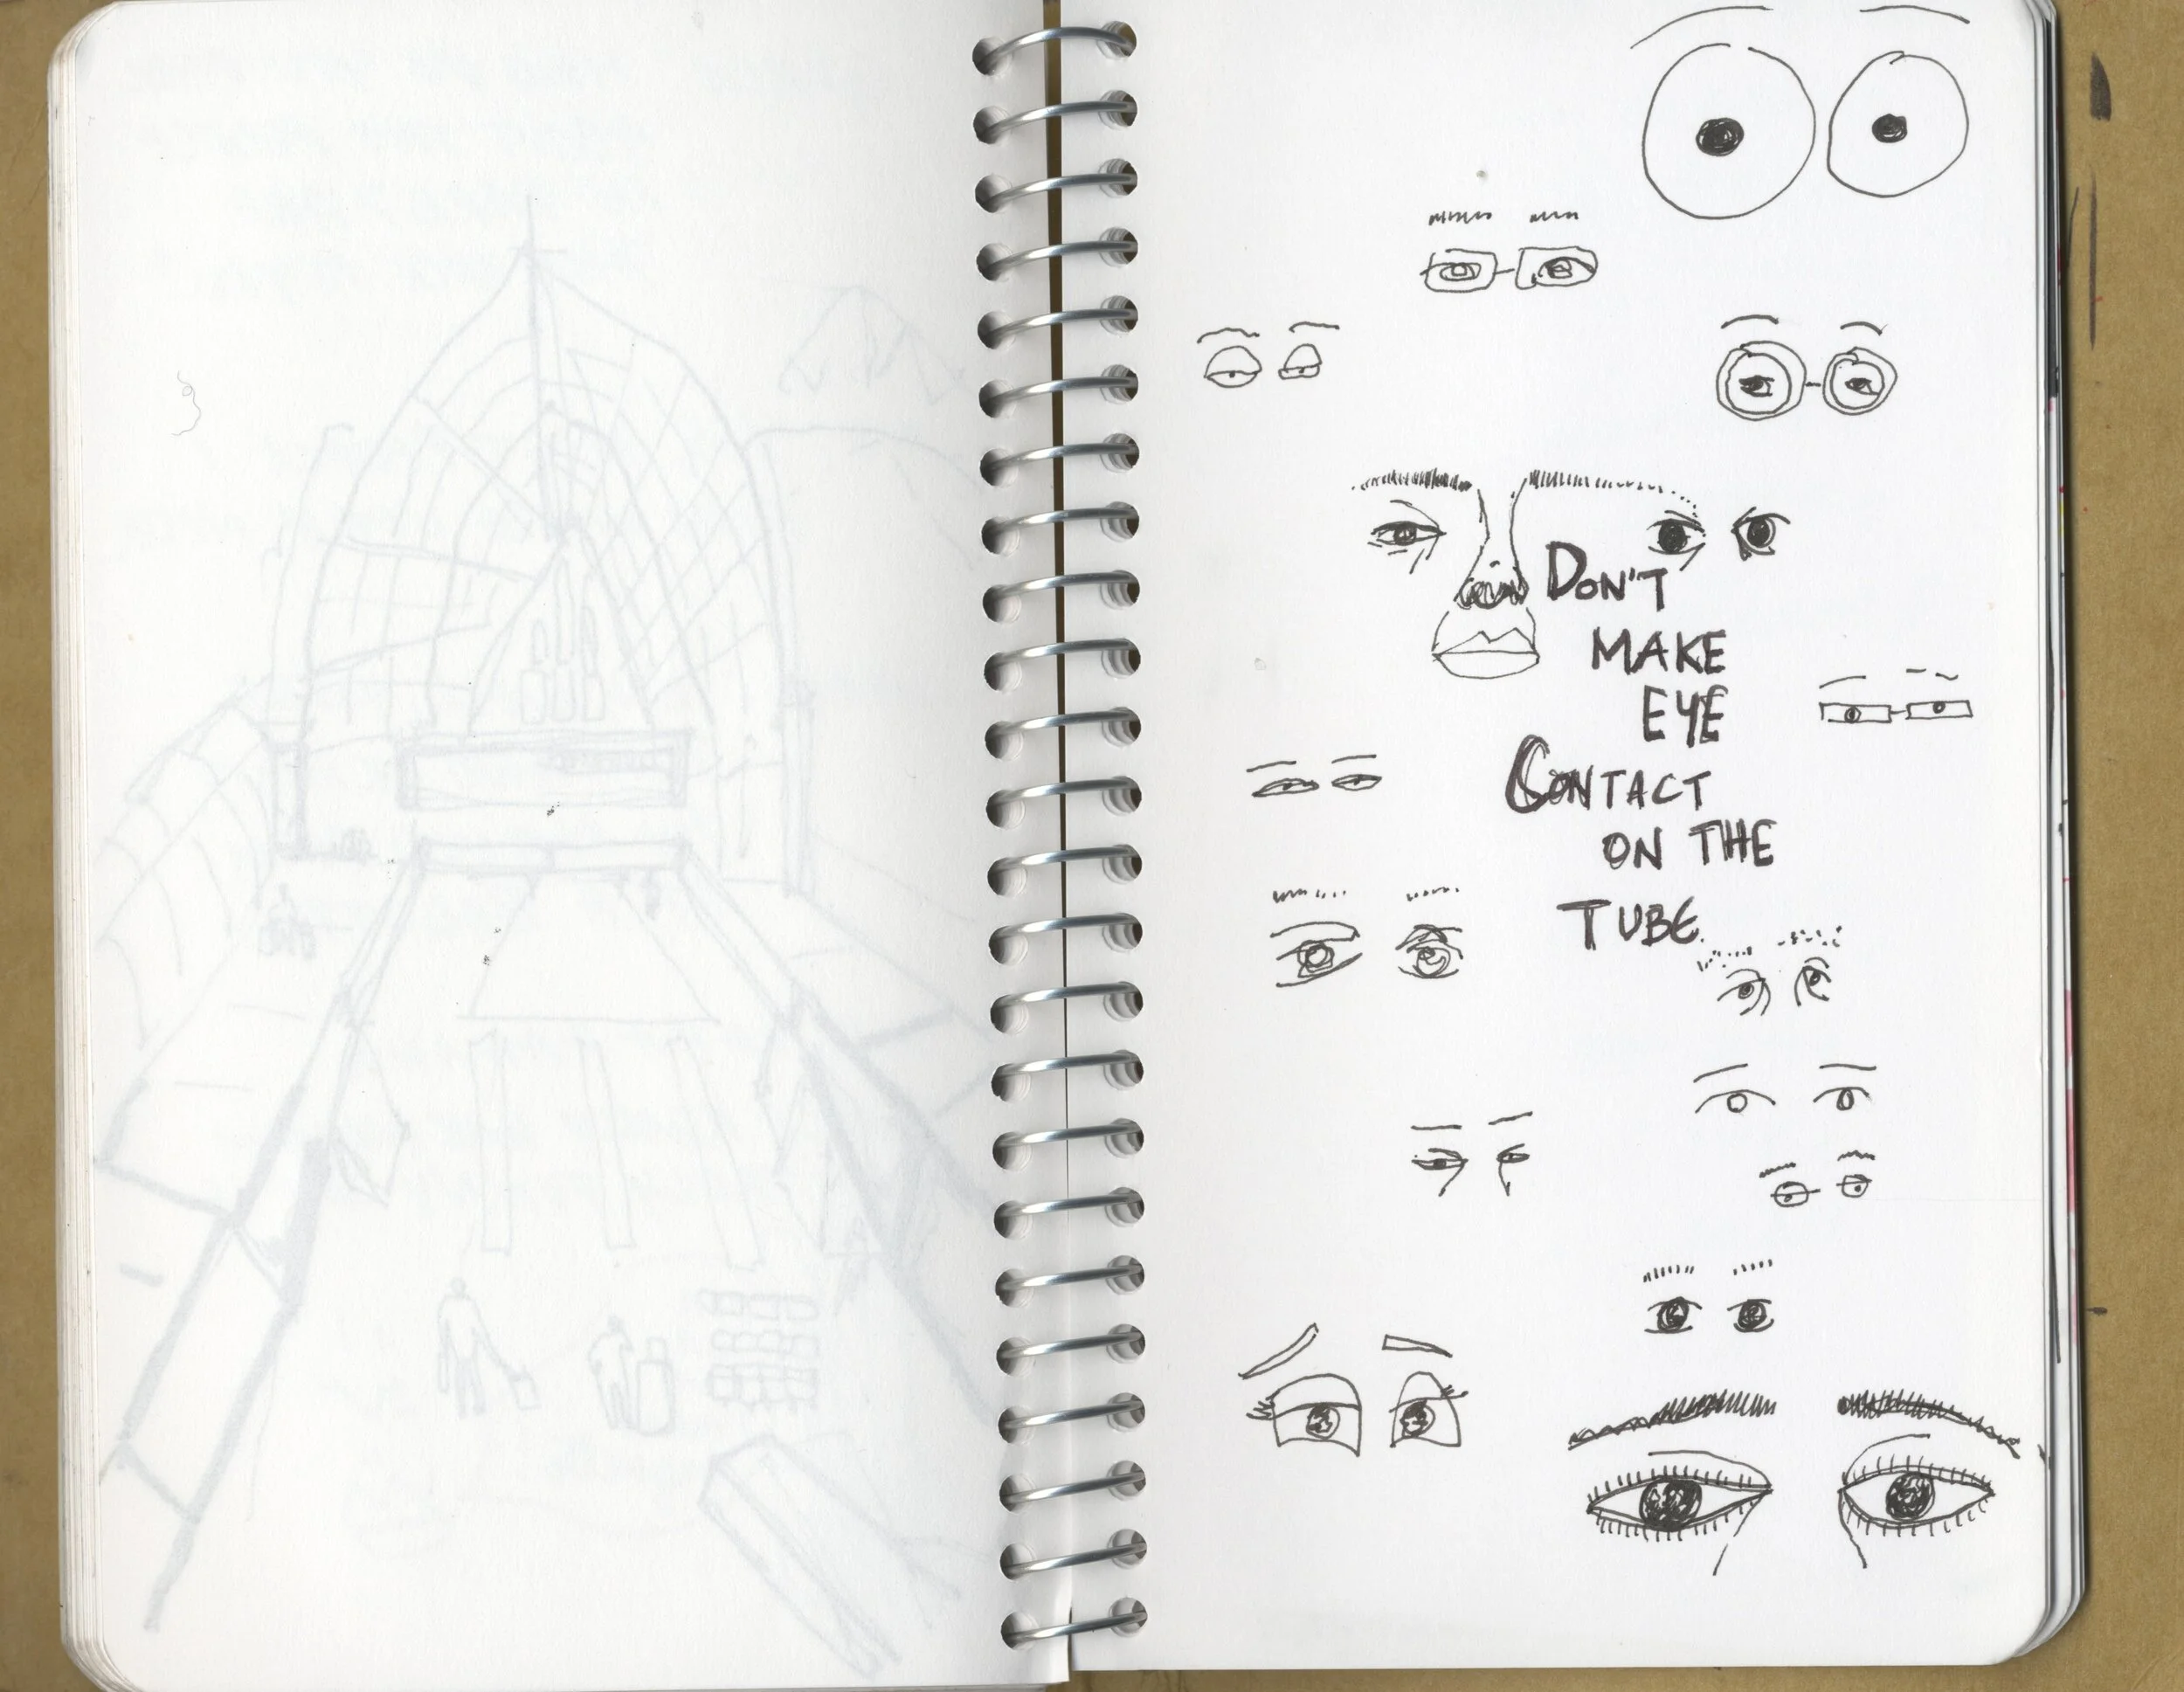 DON'T
MAKE
EYE
CONTACT
ON THE
TUBE.